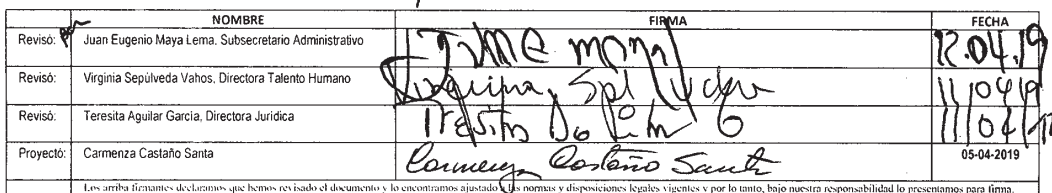 NOMBRE FIRMA FECHA
Revisó: Juan Eugenio Maya Lema. Subsecretario Administrativo 12.04.19
Revisó: Virginia Sepúlveda Vahos, Directora Talento Humano 11/04/19
Revisó: Teresita Aguilar García, Directora Jurídica
Proyectó: Carmenza Castaño Santa Carmenza Castaño Santa 05-04-2019
Los arriba firmantes declaramos que hemos revisado el documento y lo encontramos ajustado a las normas y disposiciones legales vigentes y por lo tanto, bajo nuestra responsabilidad lo presentamos para firma.